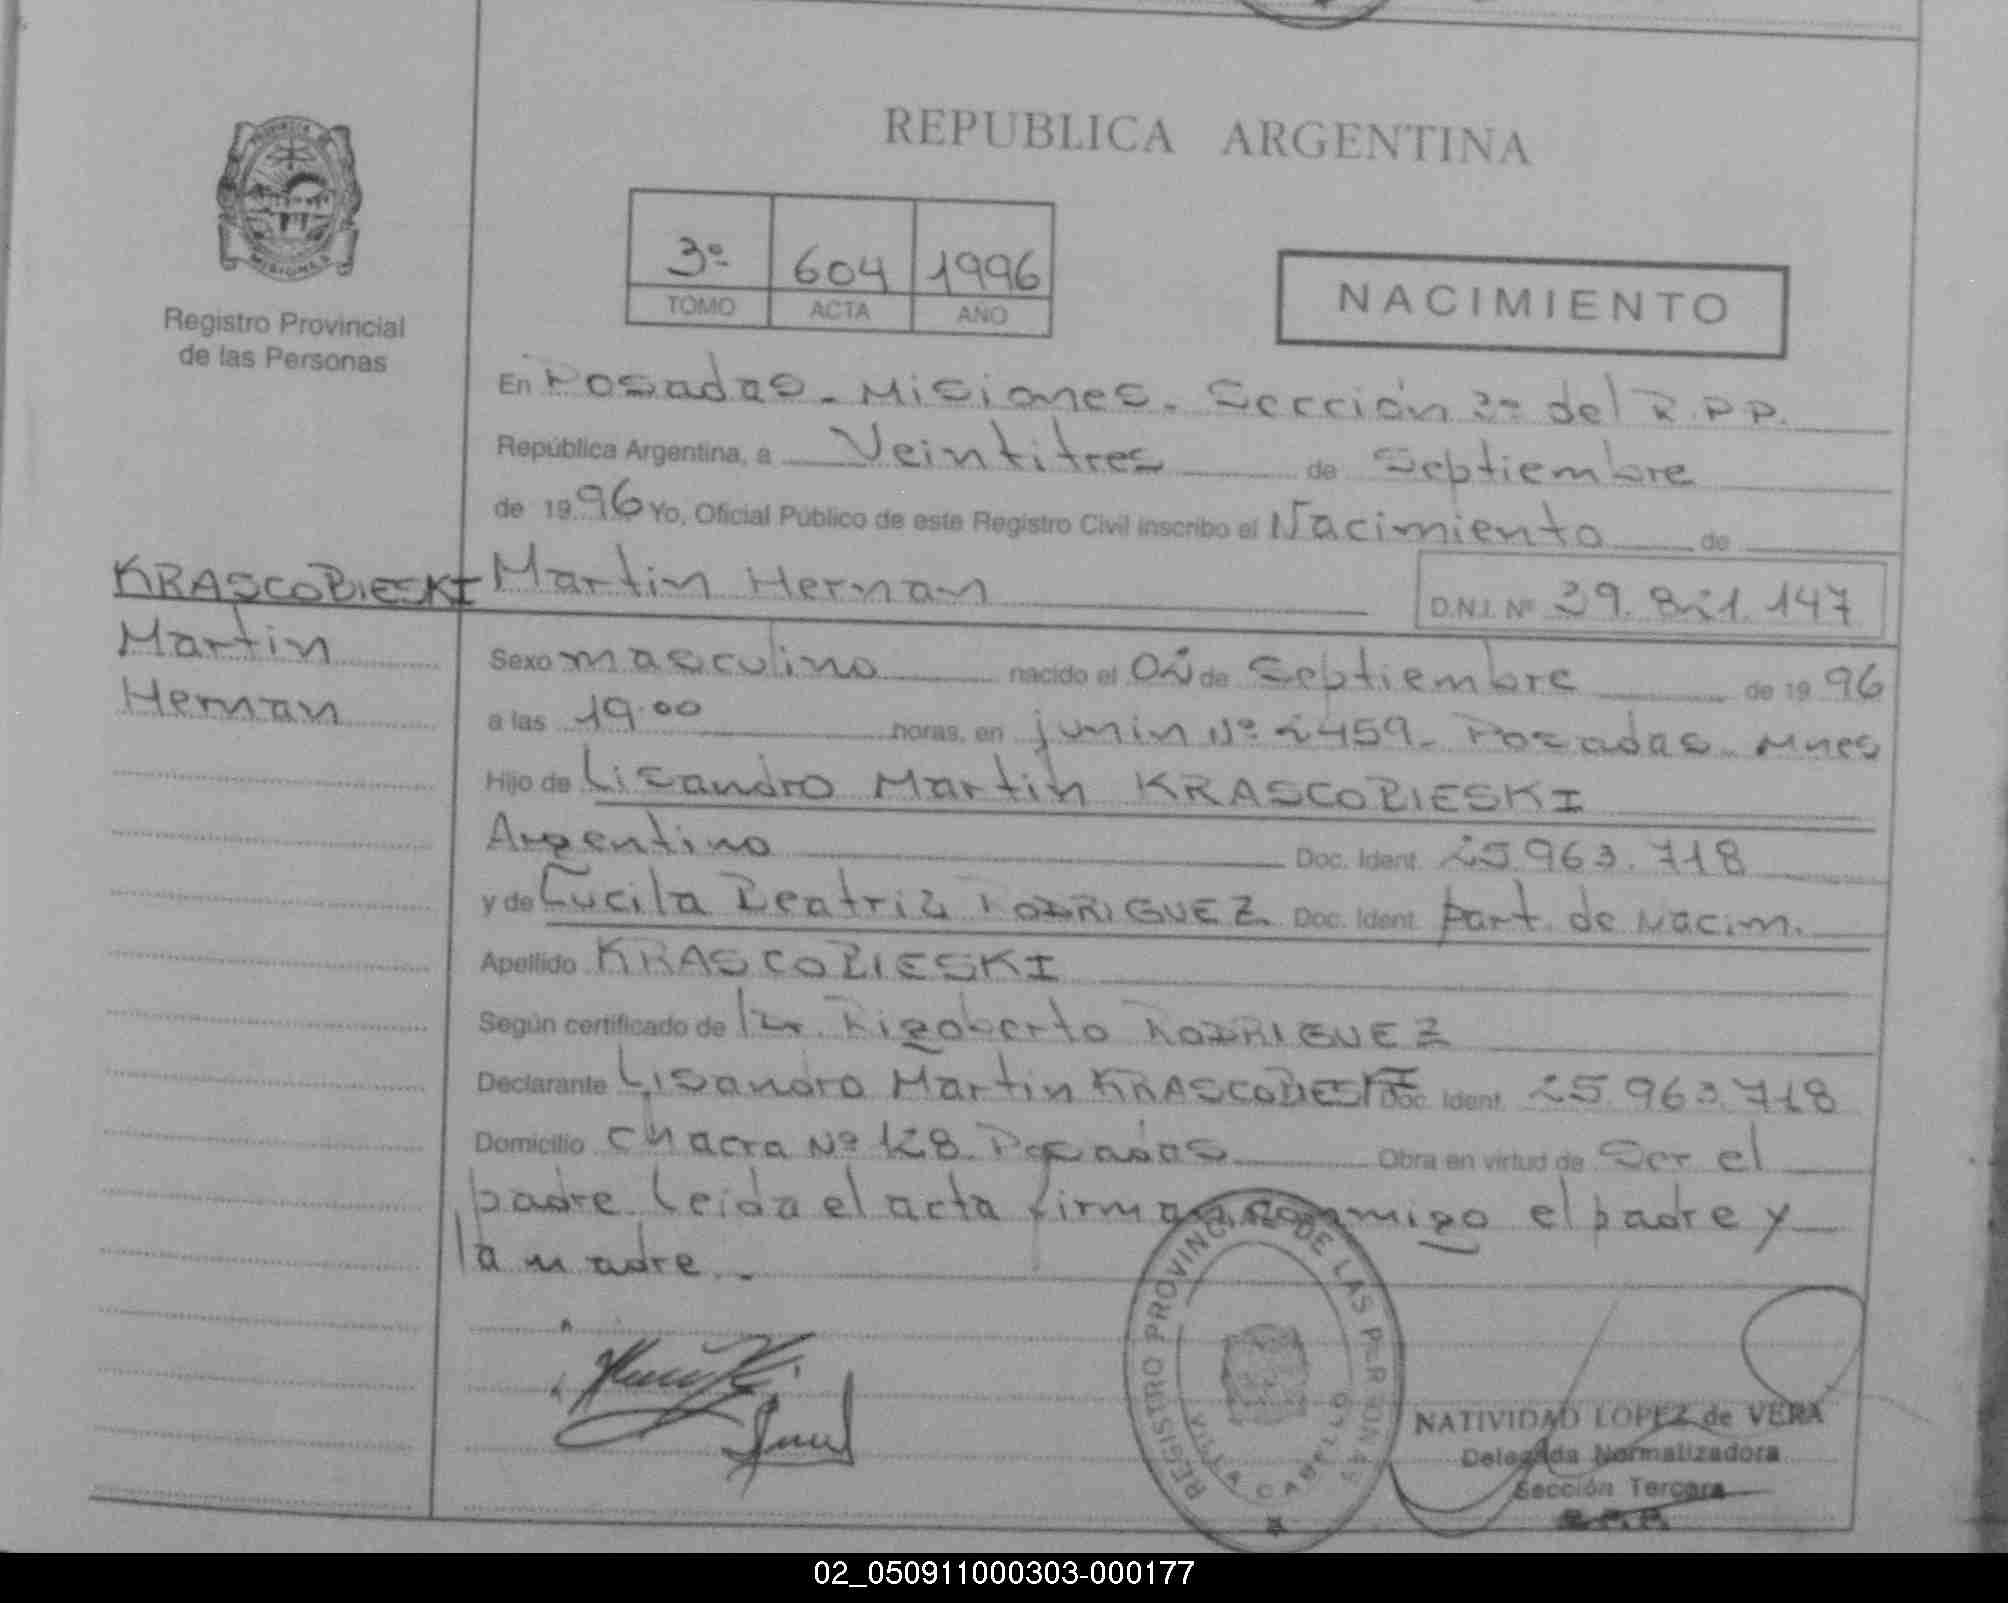 REPUBLICA ARGENTINA
3º 604 1996
TOMO ACTA AÑO
NACIMIENTO
PROVINCIA
MISIONES
Registro Provincial
de las Personas
En Posadas - Misiones. Sección 3º del R.P.P.
República Argentina, a Veintitres de Septiembre
de 1996 Yo, Oficial Público de este Registro Civil inscribo el Nacimiento de
KRASCOBIESKI Martin Hernan D.N.I. Nº 39.821.147
Martin
Hernan
Sexo masculino nacido el 02 de Septiembre de 1996
a las 19.00 horas, en junin Nº 2459 - Posadas - Mnes
Hijo de Lisandro Martin KRASCOBIESKI
Argentino Doc. Ident. 25.963.718
y de Lucila Beatriz RODRIGUEZ Doc. Ident. part. de Nacim.
Apellido KRASCOBIESKI
Según certificado de Dr. Rigoberto RODRIGUEZ
Declarante Lisandro Martin KRASCOBIESKI Doc. Ident. 25.963.718
Domicilio Chacra Nº 128. Posadas Obra en virtud de Ser el
padre. Leida el acta firman conmigo el padre y
la madre. -
REGISTRO PROVINCIAL DE LAS PERSONAS
VILLA CABELLO
NATIVIDAD LOPEZ de VERA
Delegada Normalizadora
Sección Tercera
R.P.P.
02_050911000303-000177